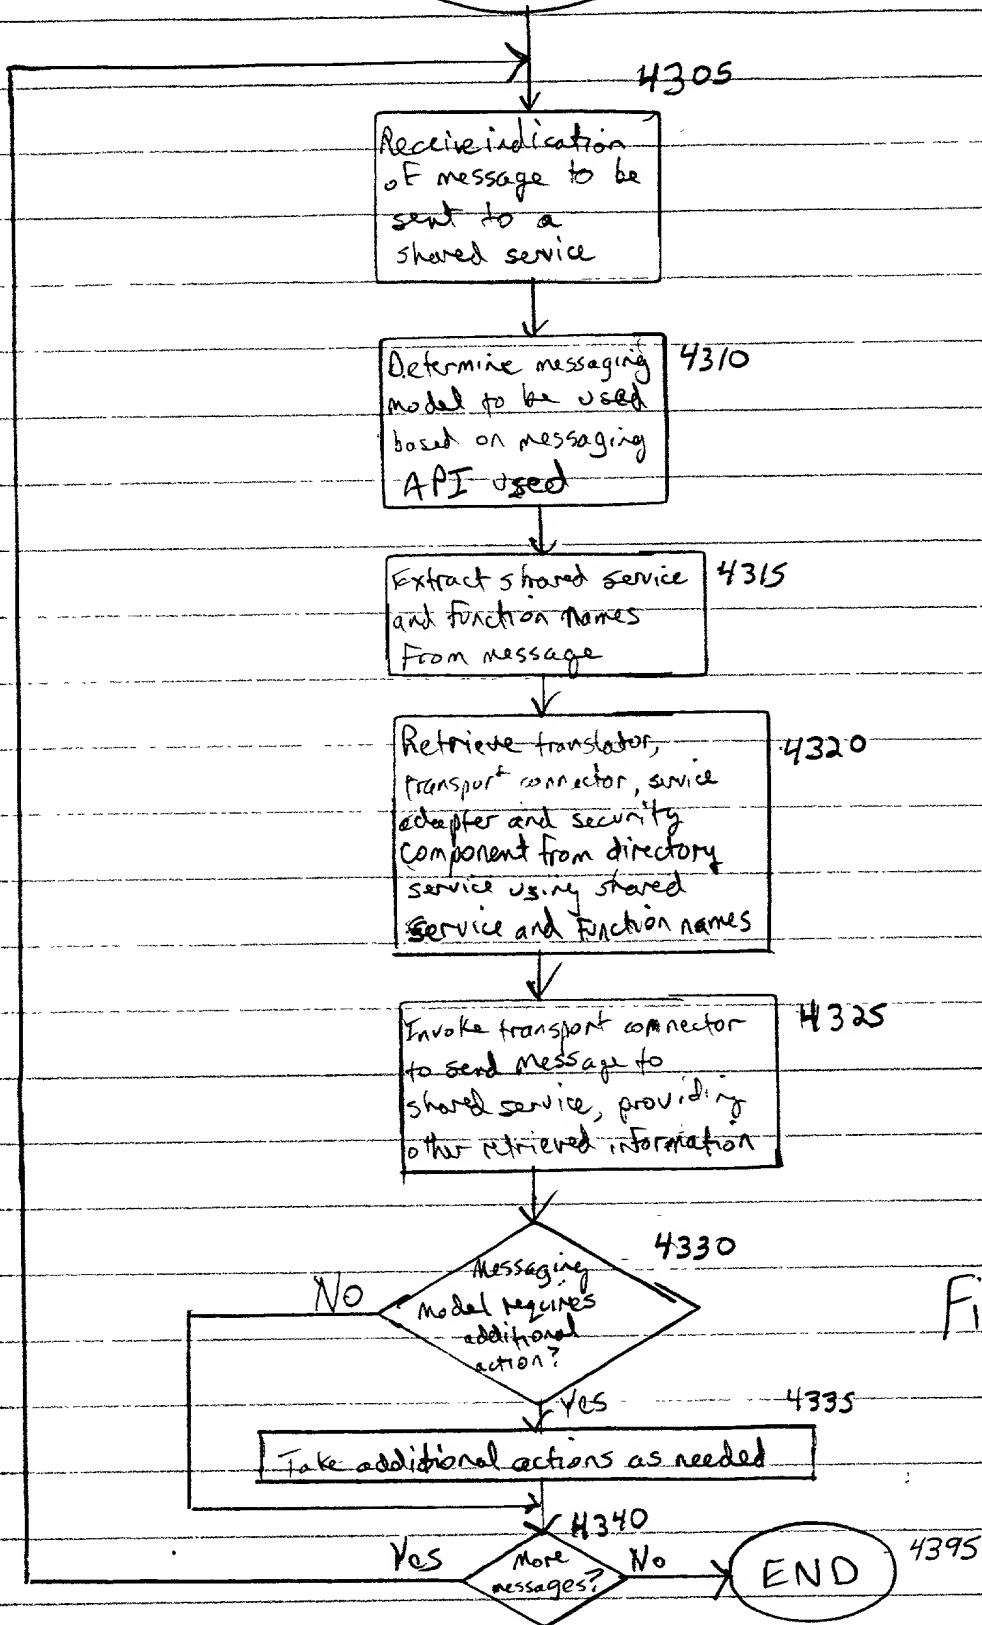 4305
Receive indication
of message to be
sent to a
shared service
Determine messaging
model to be used
based on messaging
API used
4310
Extract shared service
and function names
from message
4315
Retrieve translator,
transport connector, service
adapter and security
component from directory
service using shared
service and function names
4320
Invoke transport connector
to send message to
shared service, providing
other retrieved information
4325
4330
Messaging
model requires
additional
action?
No
Fi
Yes
4335
Take additional actions as needed
4340
More
messages?
Yes
No
END
4395